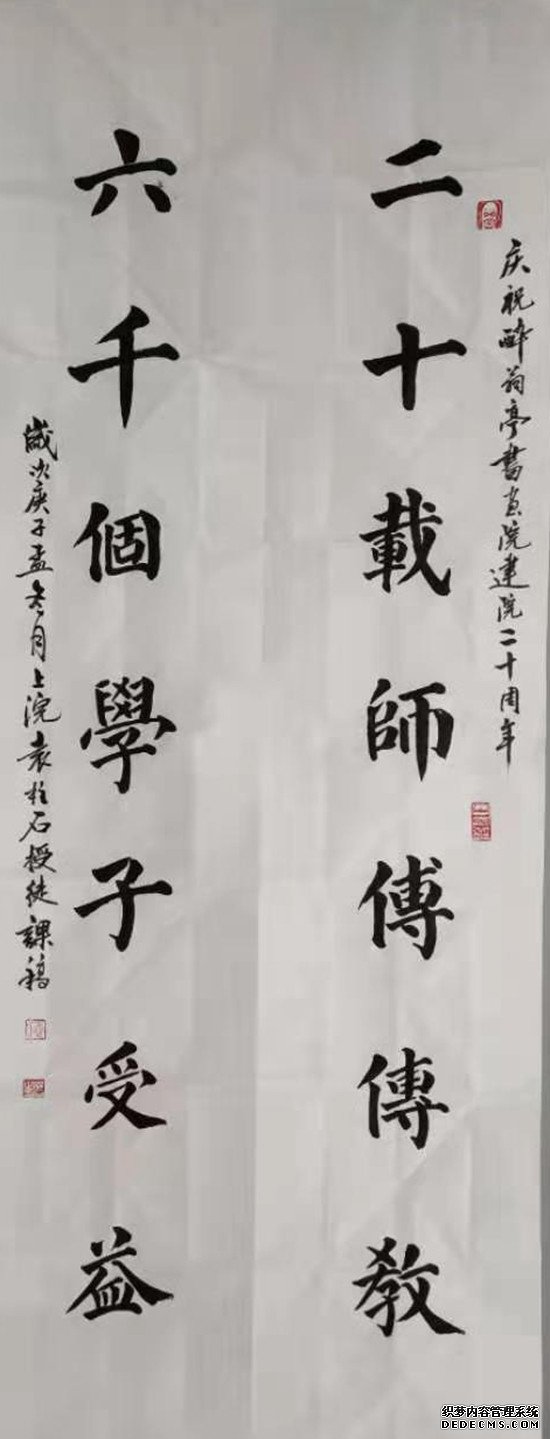 庆祝醉翁亭書画院建院二十周年
二十載師傅傳教
六千個學子受益
歲次庚子孟冬月上浣袁柱石授徒課稿
织梦内容管理系统
DEDECMS.COM